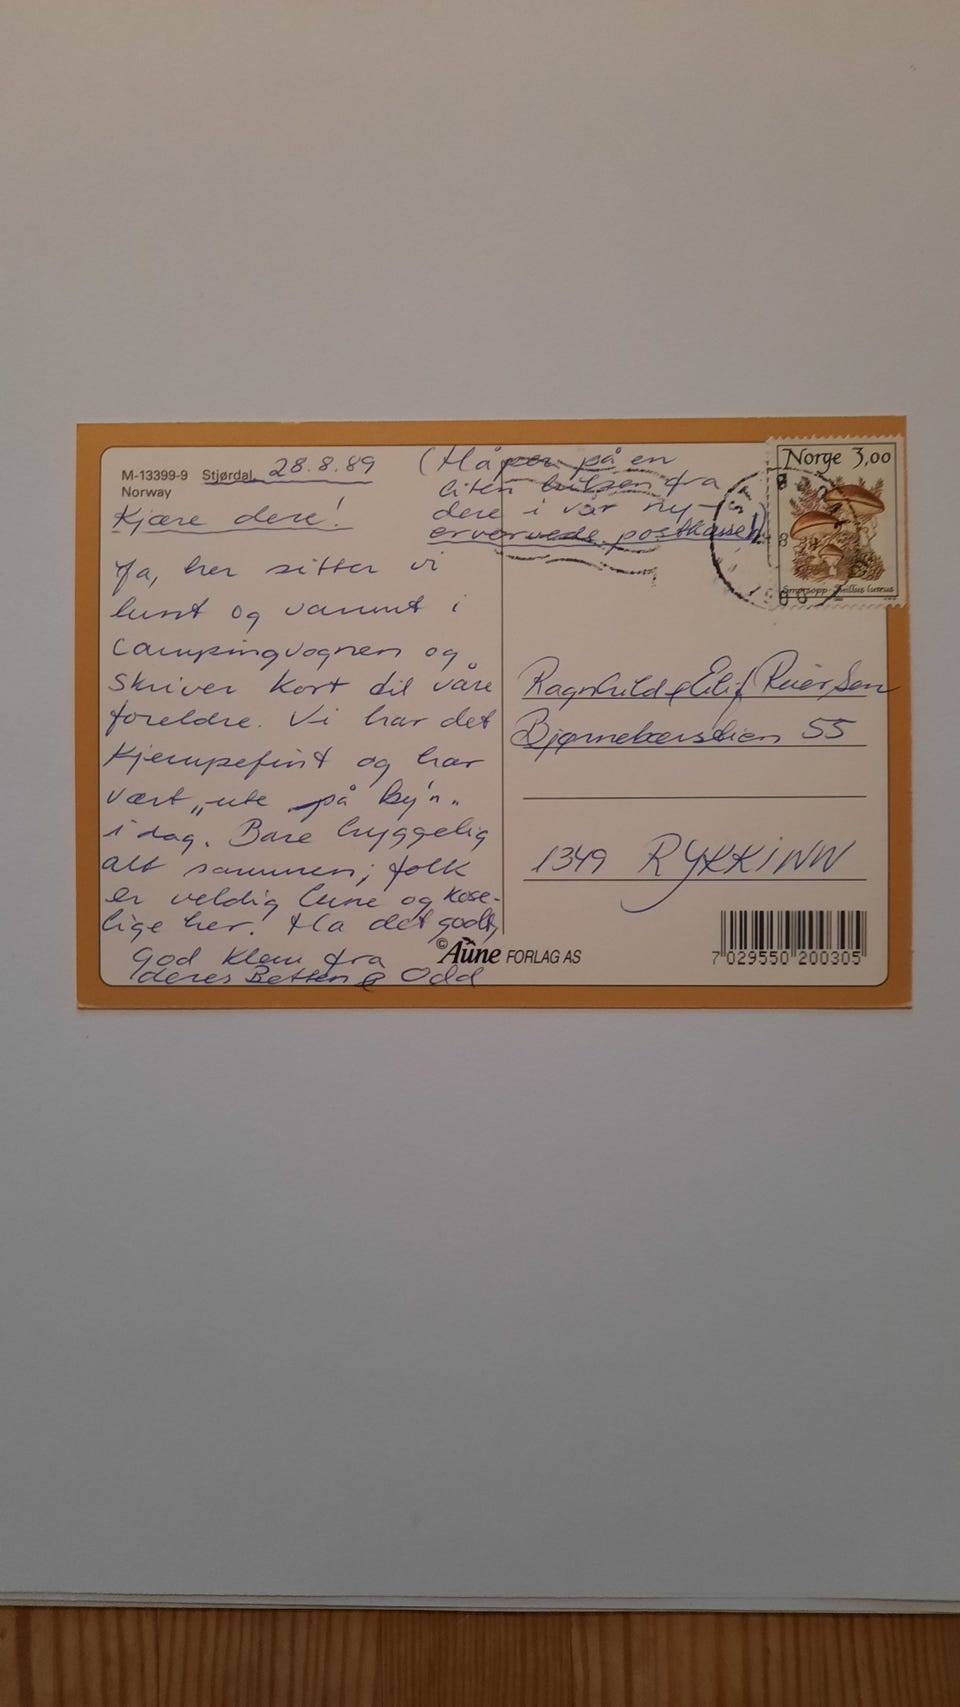 M-13399-9 Stjørdal, 28.8.89
Norway
Kjære dere!
Ja, her sitter vi
lunt og varmt i
campingvognen og
skriver kort til våre
foreldre. Vi har det
kjempefint og har
vært „ute på by'n"
i dag. Bare hyggelig
alt sammen; folk
er veldig lune og kose-
lige her. Ha det godt,
God klem fra
deres Betten & Odd
(Håper på en
liten hilsen fra
dere i vår ny-
ervervede postkasse!)
Norge 3,00
Smørsopp · Suillus luteus
Ragnhild & Leif Reiersen
Bjørnebærstien 55
1349 RYKKINN
© Aune FORLAG AS
7 029550 200305